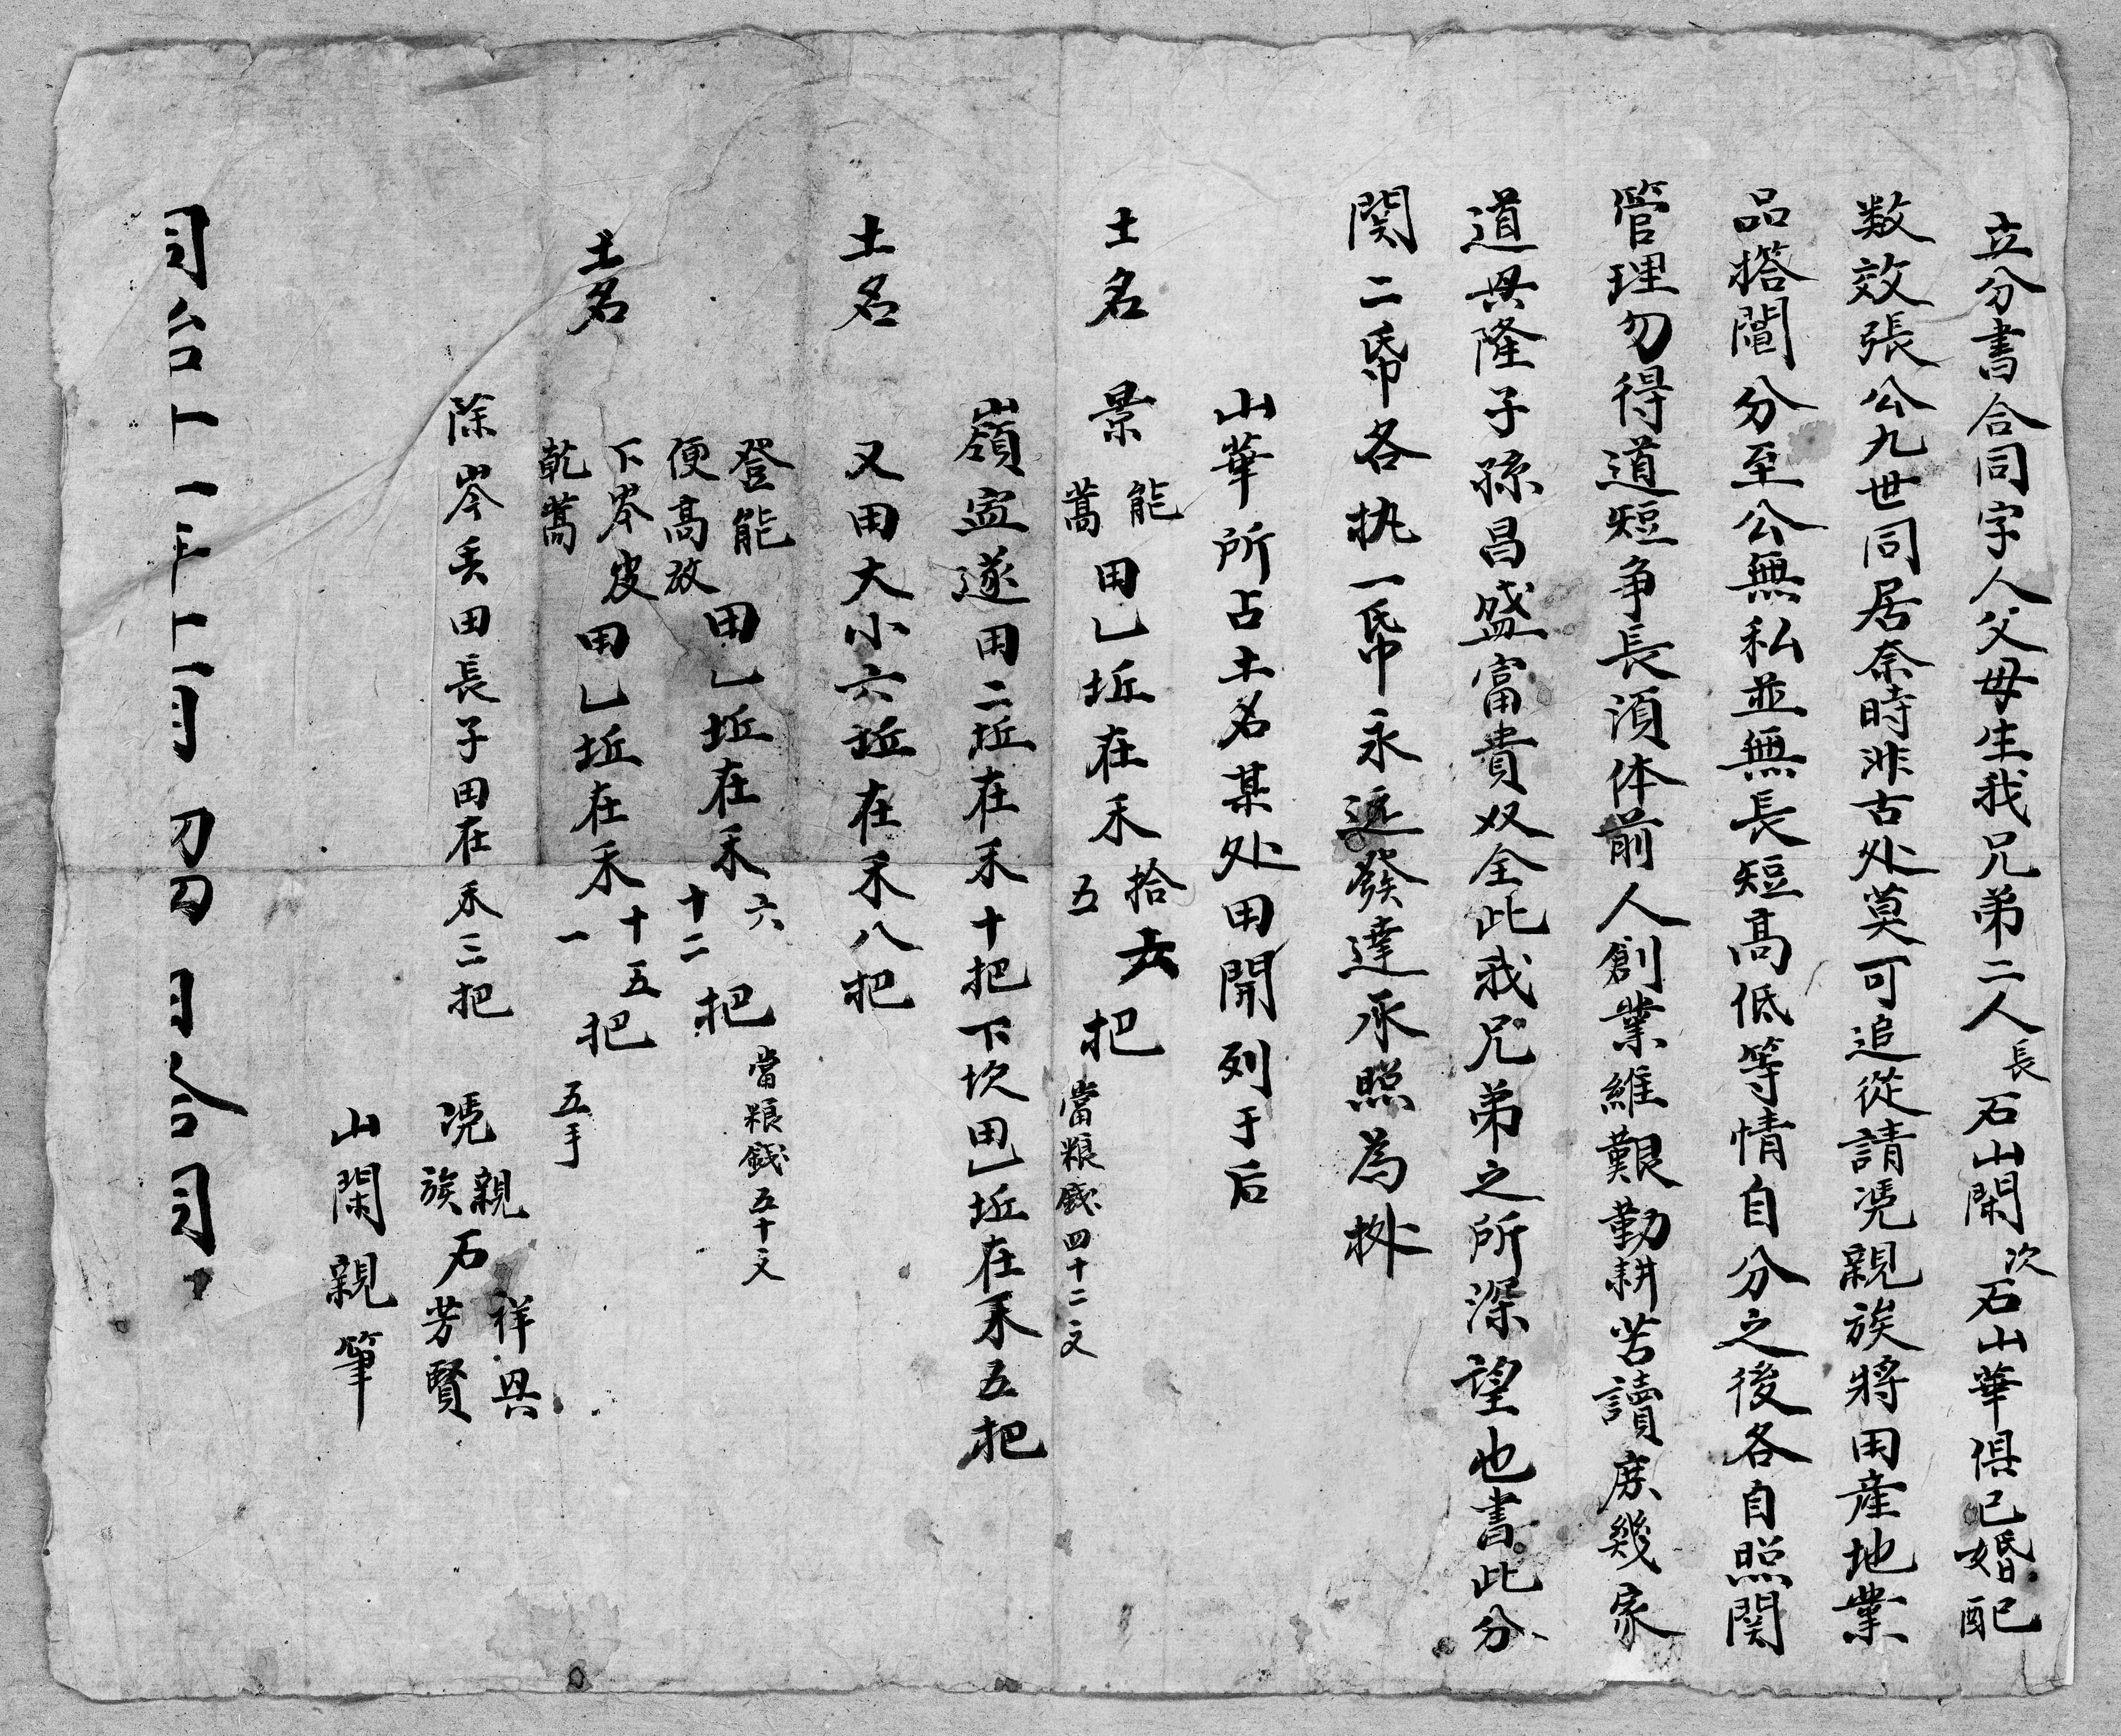 立分書合同字人父母生我兄弟二人長石山閑次石山華俱已婚配
数效張公九世同居奈時非古处莫可追從請凴親族將田產地業
品搭鬮分至公無私並無長短高低等情自分之後各自照関
管理勿得道短争長須体前人創業維艱勤耕苦讀庶幾家
道興隆子孫昌盛富貴双全此我兄弟之所深望也書此分
関二帋各执一帋永遠發達承照為拠
山華所占土名某处田開列于后
土名景能蒿田乚坵在禾拾五六把當粮錢四十二文
嶺盆遂田二坵在禾十把下坎田乚坵在禾五把
土名又田大小六坵在禾八把
登能便高放田乚坵在禾六十二把當粮錢五十文
土名下岑皮乾蒿田乚坵在禾十五一把五手
除岑丢田長子田在禾三把
凴親族石祥興芳賢
山閑親筆